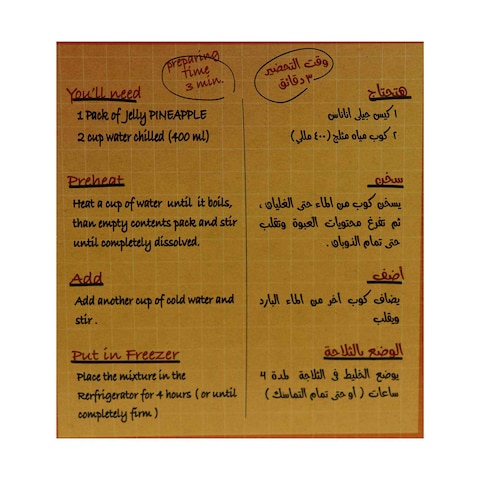 preparing
time
3 min.
You'll need
1 Pack of Jelly PINEAPPLE
2 cup water chilled (400 ml)
Preheat
Heat a cup of water until it boils,
than empty contents pack and stir
until completely dissolved.
Add
Add another cup of cold water and
stir .
Put in Freezer
Place the mixture in the
Rerfrigerator for 4 hours ( or until
completely firm )
وقت التحضير
٣ دقائق
هتحتاج
١ كيس جيلى اناناس
٢ كوب مياه مثلج (٤٠٠ مللي)
سخن
يسخن كوب من الماء حتى الغليان ،
ثم تفرغ محتويات العبوة وتقلب
حتى تمام الذوبان .
اضف
يضاف كوب اخر من الماء البارد
ويقلب
الوضع بالثلاجة
يوضع الخليط فى الثلاجة لمدة ٤
ساعات ( أو حتى تمام التماسك )